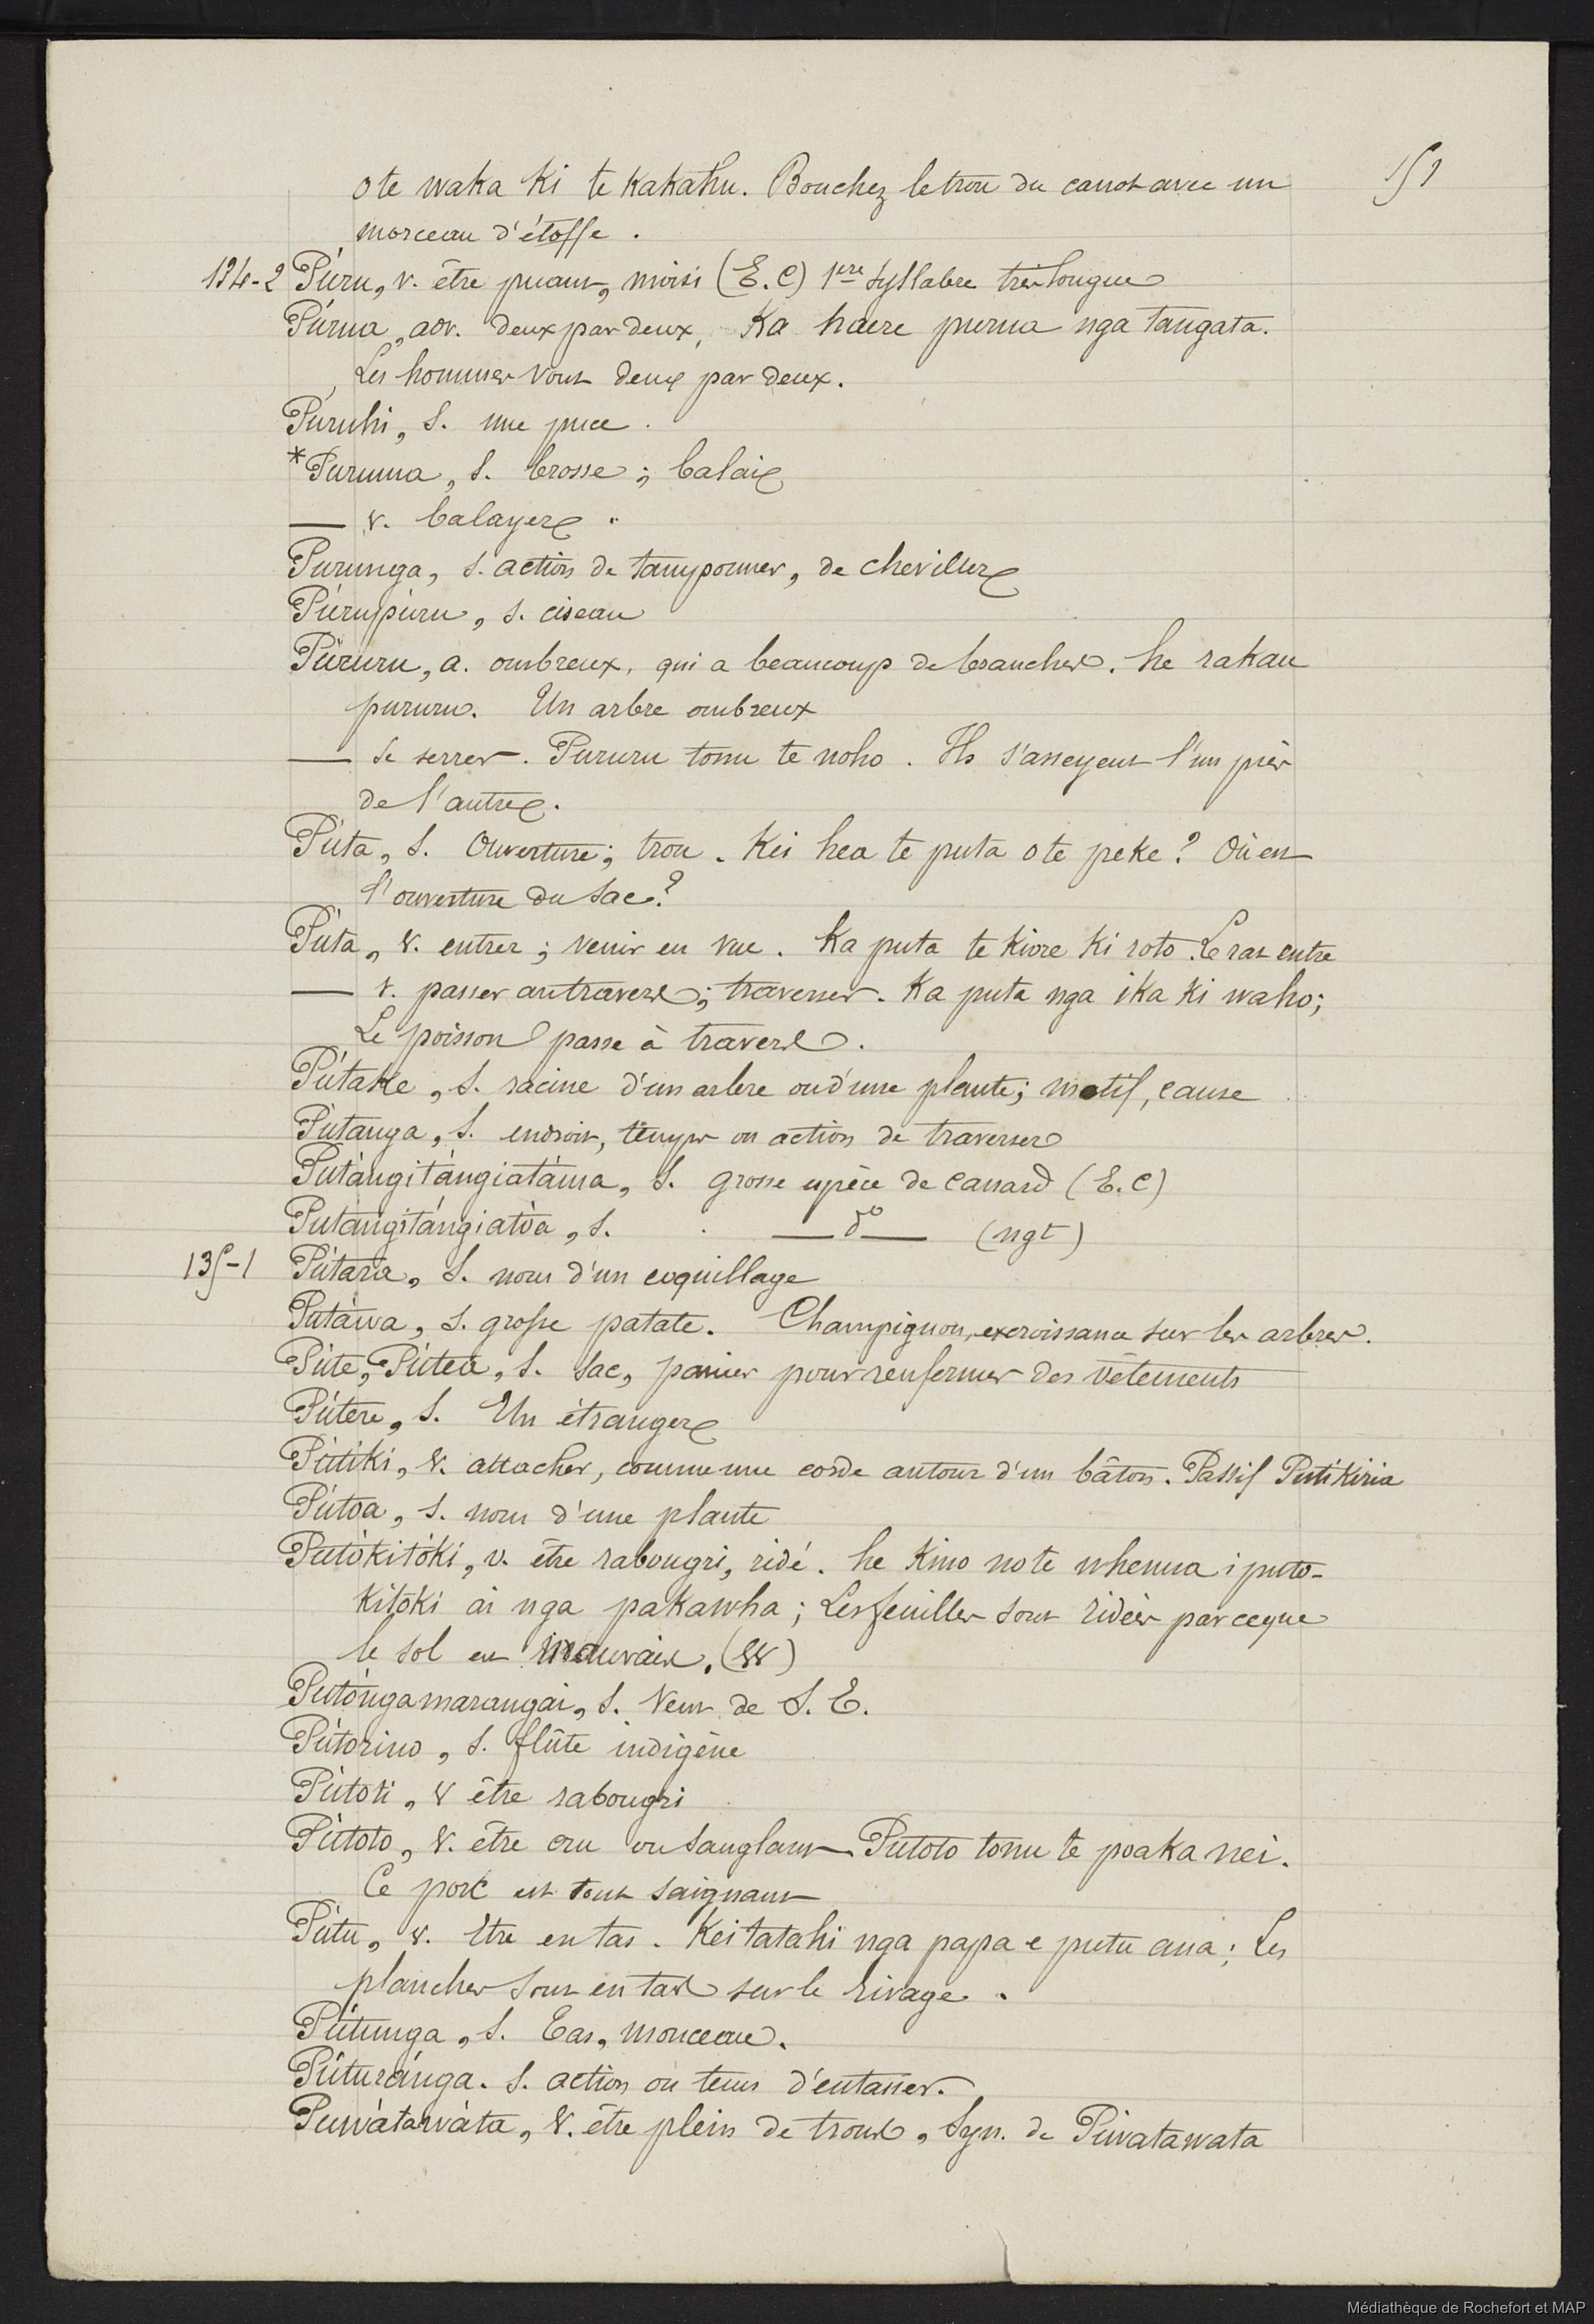 151
o te waka ki te kakahu. Bouchez le trou du canot avec un
morceau d'étoffe.
134-2 Púru, v. être puant, moisi (E.C) 1ere syllabe très longue
Púrua, adv. deux par deux, Ka haere purua nga tangata.
Les hommes vont deux par deux.
Puruhi, s. une puce.
*Puruma, s. brosse; balai
— v. balayer.
Purunga, s. action de tamponner, de cheviller
Púrupúru, s. ciseau
Púruru, a. ombreux, qui a beaucoup de branches. he rakau
pururu. Un arbre ombreux
— Se serrer. Pururu tonu te noho. Ils s'asseyent l'un près
de l'autre.
Púta, s. Ouverture; trou. Kei hea te puta o te peke? Où est
l'ouverture du sac?
Púta, v. entrer; venir en vue. Ka puta te kiore ki roto. Le rat entre
— v. passer au travers; traverser. Ka puta nga ika ki waho;
Le poisson passe à travers.
Pútake, s. racine d'un arbre ou d'une plante; motif, cause
Pútanga, s. endroit, temps ou action de traverser
Putángitángiatáma, s. grosse espèce de canard (E.C)
Putángitángiatóa, s. — do — (ngt)
135-1 Pútara, s. nom d'un coquillage
Putáwa, s. grosse patate. Champignon, excroissance sur les arbres.
Púte, Pútea, s. sac, panier pour renfermer des vêtements
Pútere, s. Un étranger
Pútiki, v. attacher, comme une corde autour d'un bâton. Passif Putikiria
Pútoa, s. nom d'une plante
Putókitóki, v. être rabougri, ridé. he kino no te whenua i puto-
kitoki ai nga pakawha; Les feuilles sont ridées parceque
le sol est mauvais. (W)
Putóngamarangai, s. Vent de S. E.
Pútorino, s. flûte indigène
Pútoti, v être rabougri
Pútoto, v. être cru ou sanglant. Putoto tonu te poaka nei.
Ce porc est tout saignant
Pútu, v. être en tas. Kei tatahi nga papa e putu ana; Les
planches sont en tas sur le rivage.
Pútunga, s. Tas, monceau.
Púturánga. s. action ou tems d'entasser.
Puwátawáta, v. être plein de trous, Syn. de Piwatawata
Médiathèque de Rochefort et MAP